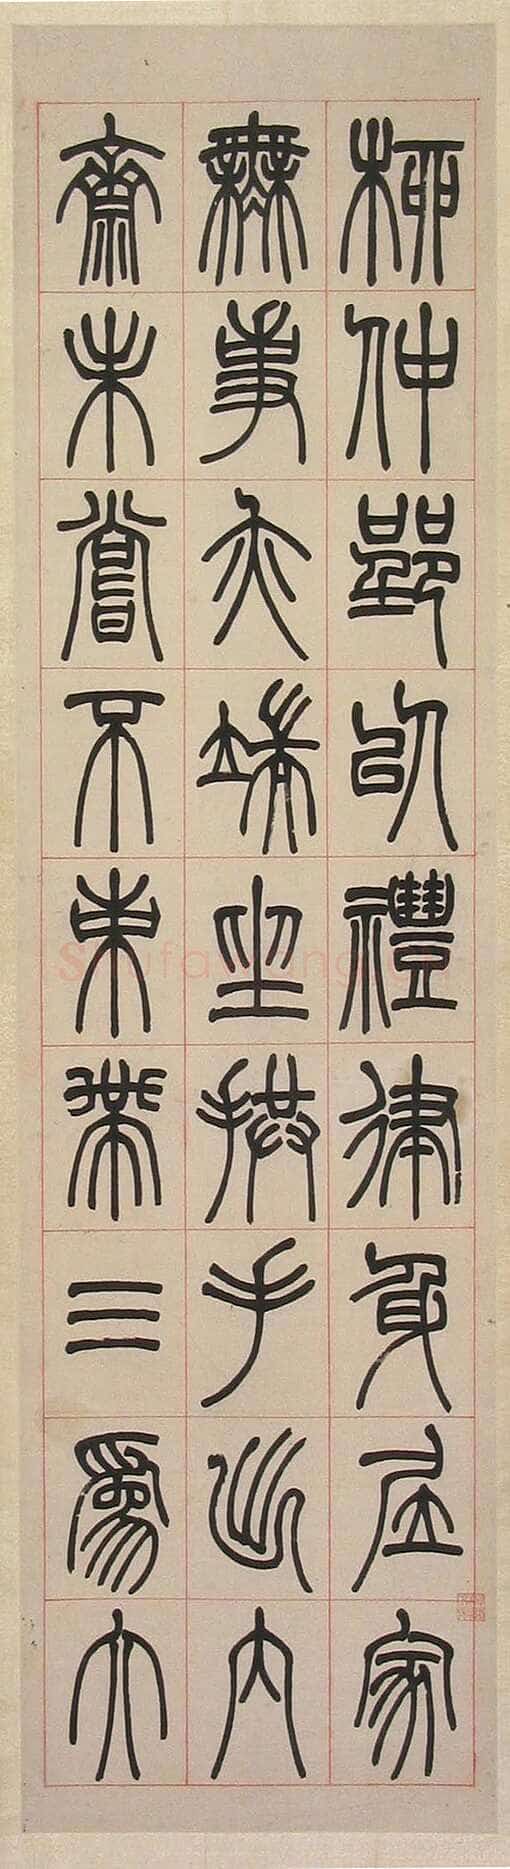 柳仲郢以禮律身居家
無事亦端坐拱手出內
齋未嘗不束帶三為大